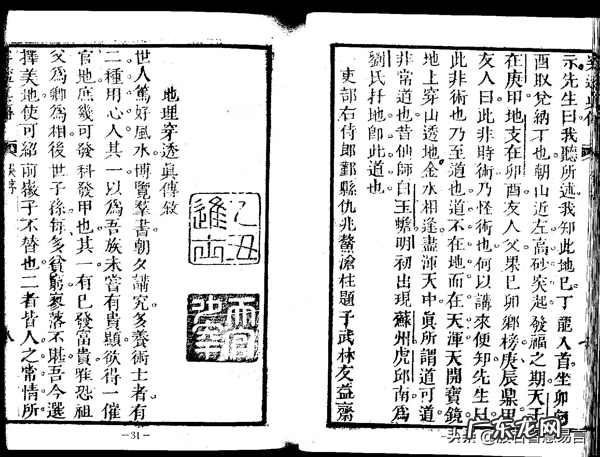 示先生曰我聽所述我知此地巳丁龍入首坐卯向
酉取兌納丁也朝山近左高砂突起發福之期天干
在庚甲地支在卯酉友人父果巳卯鄉榜庚辰鼎甲
友人曰此非時術乃怪術也何以講來便知先生曰
此非術也乃至道也道不在地而在天渾天開寶鏡
地上穿山透地金水相逢盡渾天中眞所謂道可道
非常道也昔仙師白玉蟾明初出現蘇州虎邱南為
劉氏扦地卽此道也
吏部右侍郎鄞縣仇兆鰲滄柱題于武林友益齋
乙丑進士
地理穿透眞傳敘
世人篤好風水博覽羣書朝夕講究多養術士者有
二種用心人其一以為吾族未嘗有貴顯欲得一催
官地庶幾可發科發甲也其一有巳發富貴雅恐祖
父為卿為相後世子孫每多貧窮衰落不堪吾今選
擇美地使可紹前徽子不替也二者皆人之常情所
八
—31—
广东龙网